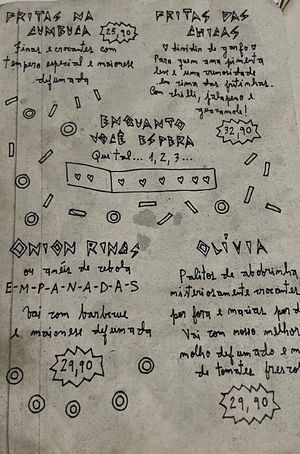 FRITAS NA
CUMBUCA
25,90
Finas e crocantes com
tempero especial e maionese
defumada
FRITAS DAS
CHICAS
♡ dividir de garfo ♡
Para quem ama pimenta
leve e uma cremosidade
em cima das fritinhas.
Com chilli, jalapeno e
guacamole!
32,90
ENQUANTO
VOCÊ ESPERA
Que tal... 1, 2, 3...
ONION RINGS
os anéis de cebola
E-M-P-A-N-A-D-A-S
Vai com barbecue
e maionese defumada
29,90
OLÍVIA
Palitos de abobrinha
misteriosamente crocantes
por fora e macios por d
Vai com nosso melhor
molho defumado e m
de tomates fresco
29,90